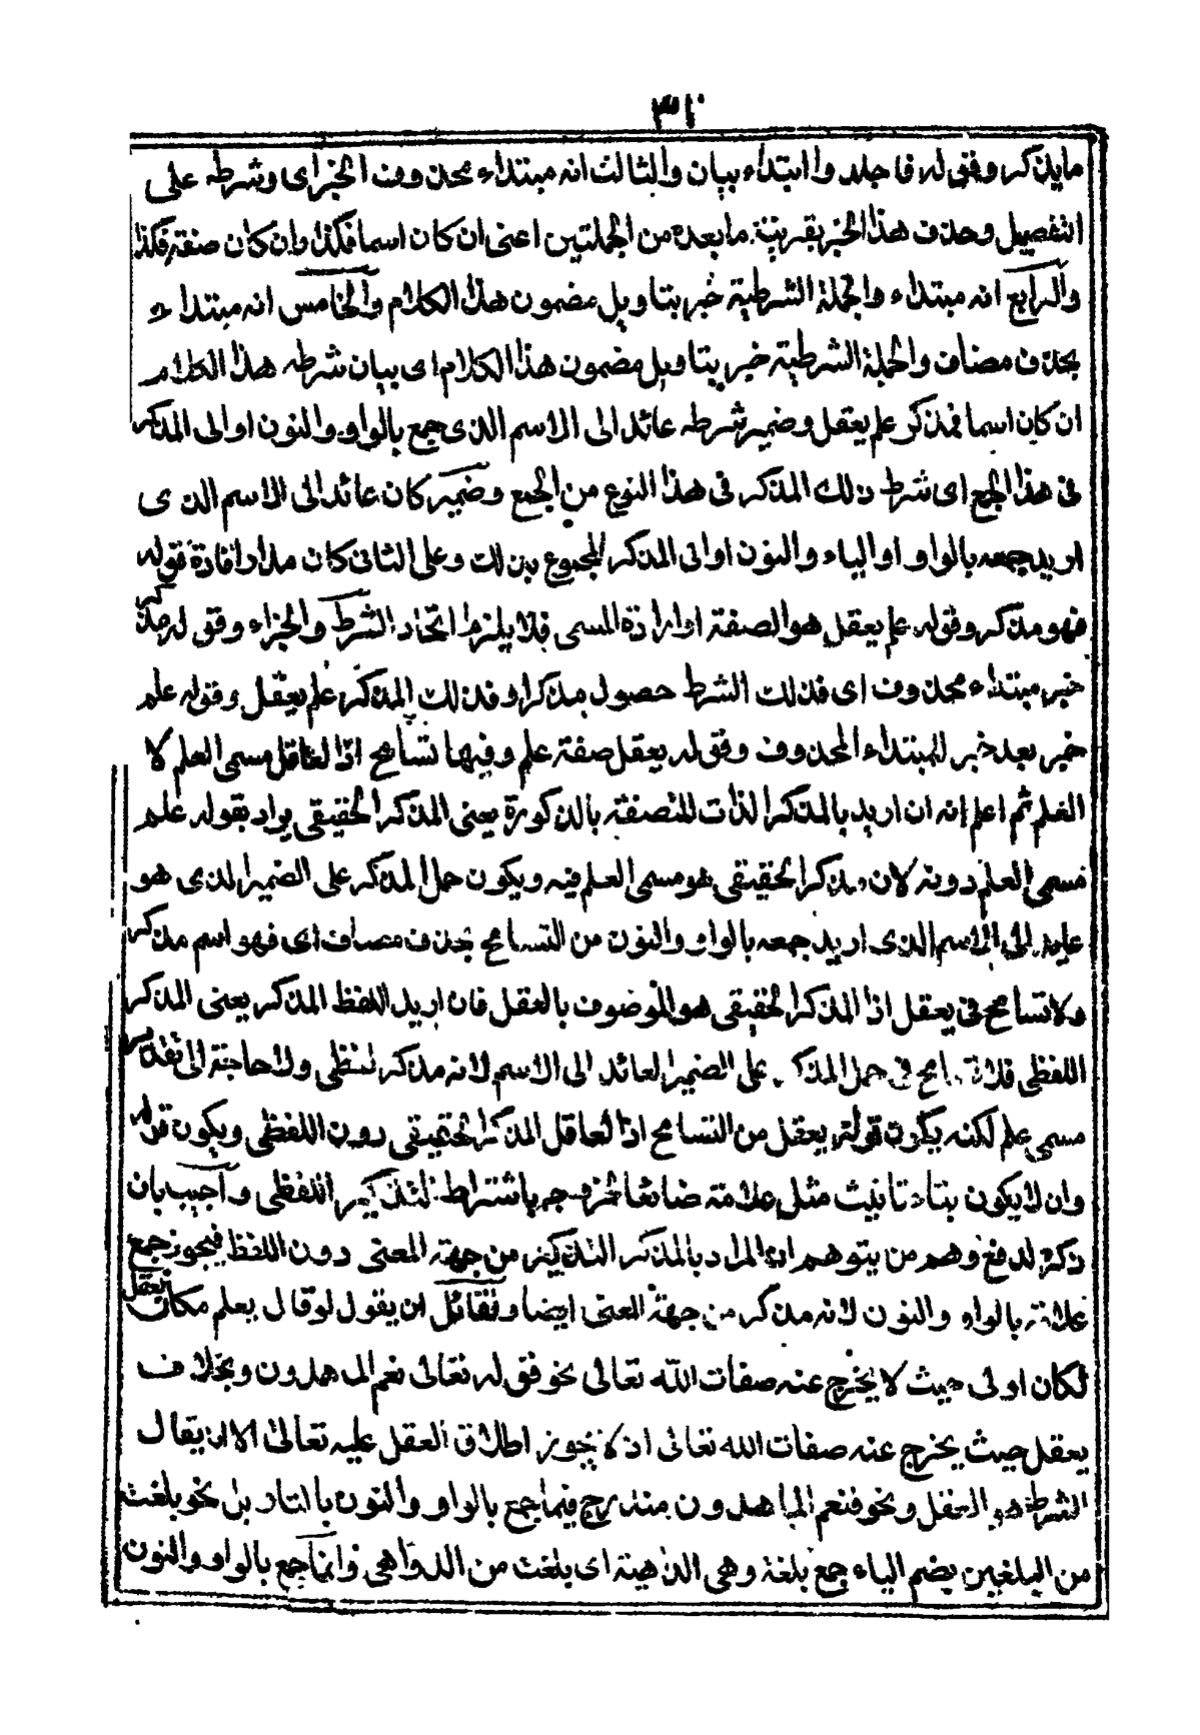 ٣١٠
ما يذكر وقوله فاجلد وابتداء ببيان والثالث انه مبتداء محذوف الخبر اى وشرطه على
التفصيل وحذف هذا الخبر بقرينة ما بعده من الجملتين اعنى ان كان اسما فكذا وان كان صفة فكذا
والرابع انه مبتداء والجملة الشرطية خبر بتاويل مضمون هذا الكلام والخامس انه مبتداء
بحذف مضاف والجملة الشرطية خبر بتاويل مضمون هذا الكلام اى بيان شرطه هذا الكلام
ان كان اسما فمذكر علم يعقل وضمير شرطه عائد الى الاسم الذى جمع بالواو والنون او الى المذكر
فى هذا الجمع اى شرط ذلك المذكر فى هذا النوع من الجمع وضمير كان عائد الى الاسم الذى
اريد جمعه بالواو او الياء والنون او الى المذكر المجموع بذلك وعلى الثانى كان مدار افادة قوله
فهو مذكر وقوله علم يعقل هو الصفة او ارادة المسمى فلا يلزم اتحاد الشرط والجزاء وقوله مذكر
خبر مبتداء محذوف اى فذلك الشرط حصول مذكر او فذلك المذكر علم يعقل وقوله علم
خبر بعد خبر للمبتداء المحذوف وقوله يعقل صفة علم وفيها تسامح اذ العاقل مسمى العلم لا
العلم ثم اعلم انه ان اريد بالمذكر الذات المتصفة بالذكورة يعنى المذكر الحقيقى يراد بقوله علم
مسمى العلم دونه لان مذكر الحقيقى هو مسمى العلم فيه ويكون حمل المذكر على الضمير الذى هو
عايد الى الاسم الذى اريد جمعه بالواو والنون من التسامح بحذف مضاف اى فهو اسم مذكر
ولا تسامح فى يعقل اذ المذكر الحقيقى هو الموضوف بالعقل فان اريد اللفظ المذكر يعنى المذكر
اللفظى فلا تسامح فى حمل المذكر على الضمير العائد الى الاسم لانه مذكر لفظى ولا حاجة الى تقدير
مسمى علم لكنه يكون قوله يعقل من التسامح اذ العاقل المذكر الحقيقى دون اللفظى ويكون قوله
وان لا يكون بتاء تانيث مثل علامة ضائعا لخروجه باشتراط التذكير اللفظى واجيب بان
ذكره لدفع وهم من يتوهم ان المراد بالمذكر التذكير من جهة المعنى دون اللفظ فيجوز جمع
علامة بالواو والنون لانه مذكر من جهة المعنى ايضا ولقائل ان يقول لو قال يعلم مكان يعقل
لكان اولى حيث لا يخرج عنه صفات الله تعالى نحو قوله تعالى نعم الماهدون وبخلاف
يعقل حيث يخرج عنه صفات الله تعالى اذ لا يجوز اطلاق العقل عليه تعالى الا ان يقال
الشرط هو العقل ونحو فنعم الماهدون مندرج فيما جمع بالواو والنون بالتاويل نحو بلغت
من البلغين بضم الباء جمع بلغة وهى الداهية اى بلغت من الدواهى وانما جمع بالواو والنون